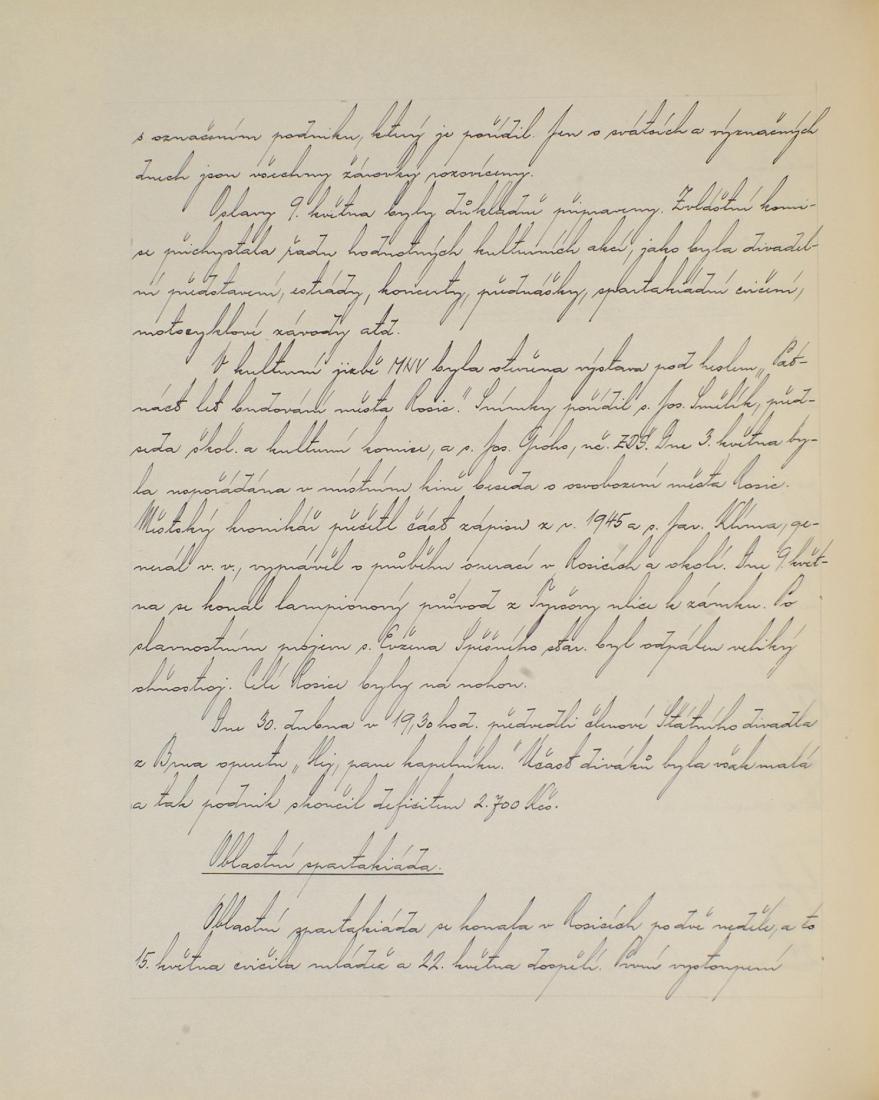 s označením podniku, který je pořídil. Jen o svátcích a význačných
dnech jsou všechny žárovky rozsvíceny.
Oslavy 9. května byly důkladně připraveny. Zvláštní komi-
se přichystala řadu hodnotných kulturních akcí, jako byla divadel-
ní představení, estrády, koncerty, přednášky, spartakiádní cvičení,
motocyklové závody atd.
V kulturní jizbě MNV byla otevřena výstava pod heslem „Pat-
náct let budování města Rosic." Snímky pořídil s. Jos. Smělík, před-
seda škol. a kulturní komise, a s. Jos. Groho, uč. ZDŠ. Dne 3. května by-
la uspořádána v místním kině beseda o osvobození města Rosic.
Městský kronikář přečetl část zápisu z r. 1945 a s. Jar. Klíma, ge-
nerál v. v., vyprávěl o průběhu operací v Rosicích a okolí. Dne 9. květ-
na se konal lampionový průvod z Tyršovy ulice k zámku. Po
slavnostním projevu s. Evžena Spěšného star. byl odpálen veliký
ohňostroj. Celé Rosice byly na nohou.
Dne 30. dubna v 19,30 hod. předvedli členové Státního divadla
z Brna operetu „Hej, pane kapelníku." Účast diváků byla však malá
a tak podnik skončil deficitem 2.700 Kčs.
Oblastní spartakiáda.
Oblastní spartakiáda se konala v Rosicích po dvě neděle, a to
15. května cvičila mládež a 22. května dospělí. První vystoupení